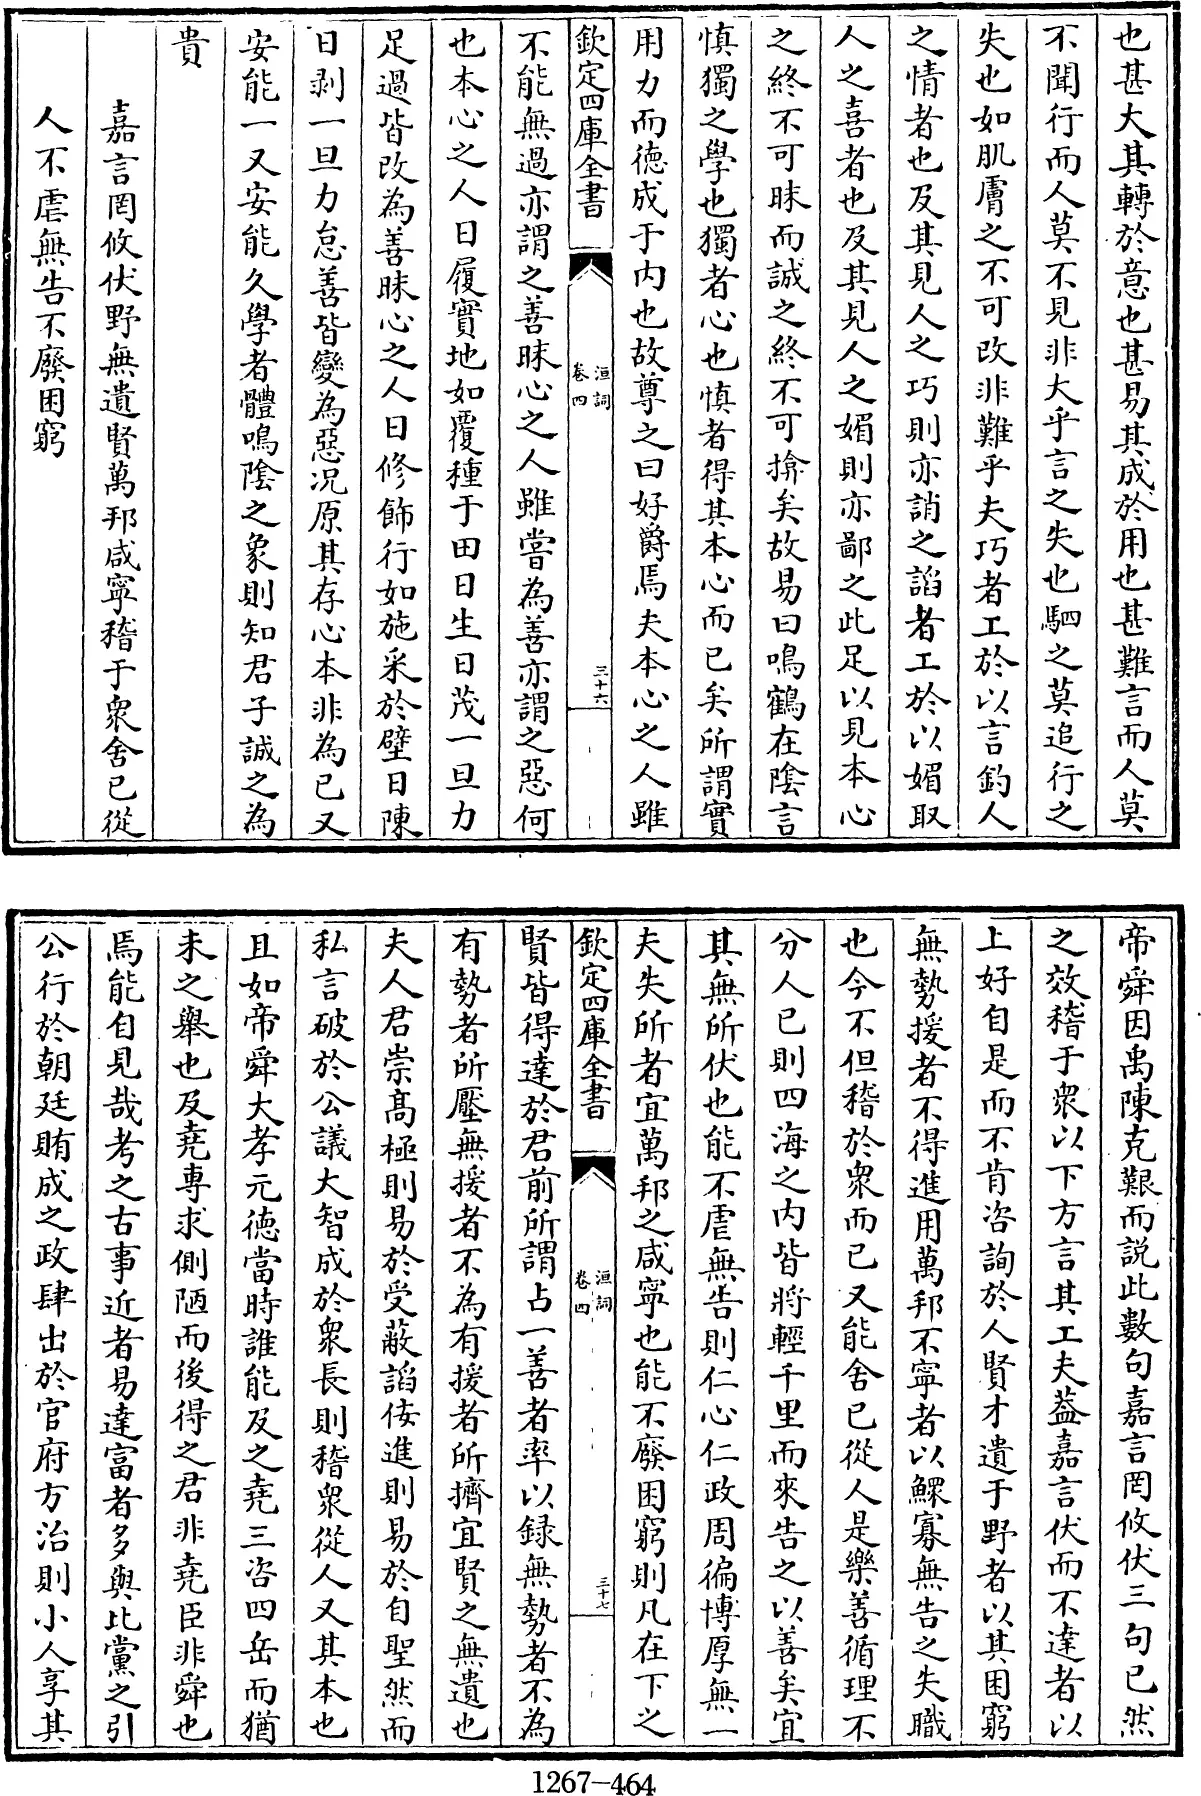 也甚大其轉於意也甚易其成於用也甚難言而人莫
不聞行而人莫不見非大乎言之失也駟之莫追行之
失也如肌膚之不可改非難乎夫巧者工於以言釣人
之情者也及其見人之巧則亦誚之謟者工於以媚取
人之喜者也及其見人之媚則亦鄙之此足以見本心
之終不可昧而誠之終不可揜矣故易曰鳴鶴在陰言
慎獨之學也獨者心也慎者得其本心而已矣所謂實
用力而徳成于内也故尊之曰好爵焉夫本心之人雖
欽定四庫全書
洹詞
卷四
三十六
不能無過亦謂之善昧心之人雖嘗為善亦謂之惡何
也本心之人日履實地如覆種于田日生日茂一旦力
足過皆改為善昧心之人日修飾行如施采於壁日陳
日剥一旦力怠善皆變為惡况原其存心本非為已又
安能一又安能久學者體鳴陰之象則知君子誠之為
貴
嘉言罔攸伏野無遺賢萬邦咸寧稽于衆舍已從
人不虐無告不廢困窮
帝舜因禹陳克艱而説此數句嘉言罔攸伏三句已然
之效稽于衆以下方言其工夫葢嘉言伏而不達者以
上好自是而不肯咨詢於人賢才遺于野者以其困窮
無勢援者不得進用萬邦不寧者以鰥寡無告之失職
也今不但稽於衆而已又能舍已從人是樂善循理不
分人已則四海之内皆將輕千里而來告之以善矣宜
其無所伏也能不虐無告則仁心仁政周徧博厚無一
夫失所者宜萬邦之咸寧也能不廢困窮則凡在下之
欽定四庫全書
洹詞
卷四
三十七
賢皆得達於君前所謂占一善者率以録無勢者不為
有勢者所壓無援者不為有援者所擠宜賢之無遺也
夫人君崇髙極則易於受蔽謟佞進則易於自聖然而
私言破於公議大智成於衆長則稽衆從人又其本也
且如帝舜大孝元德當時誰能及之堯三咨四岳而猶
未之舉也及堯專求側陋而後得之君非堯臣非舜也
焉能自見哉考之古事近者易達富者多與比黨之引
公行於朝廷賄成之政肆出於官府方治則小人享其
1267-464